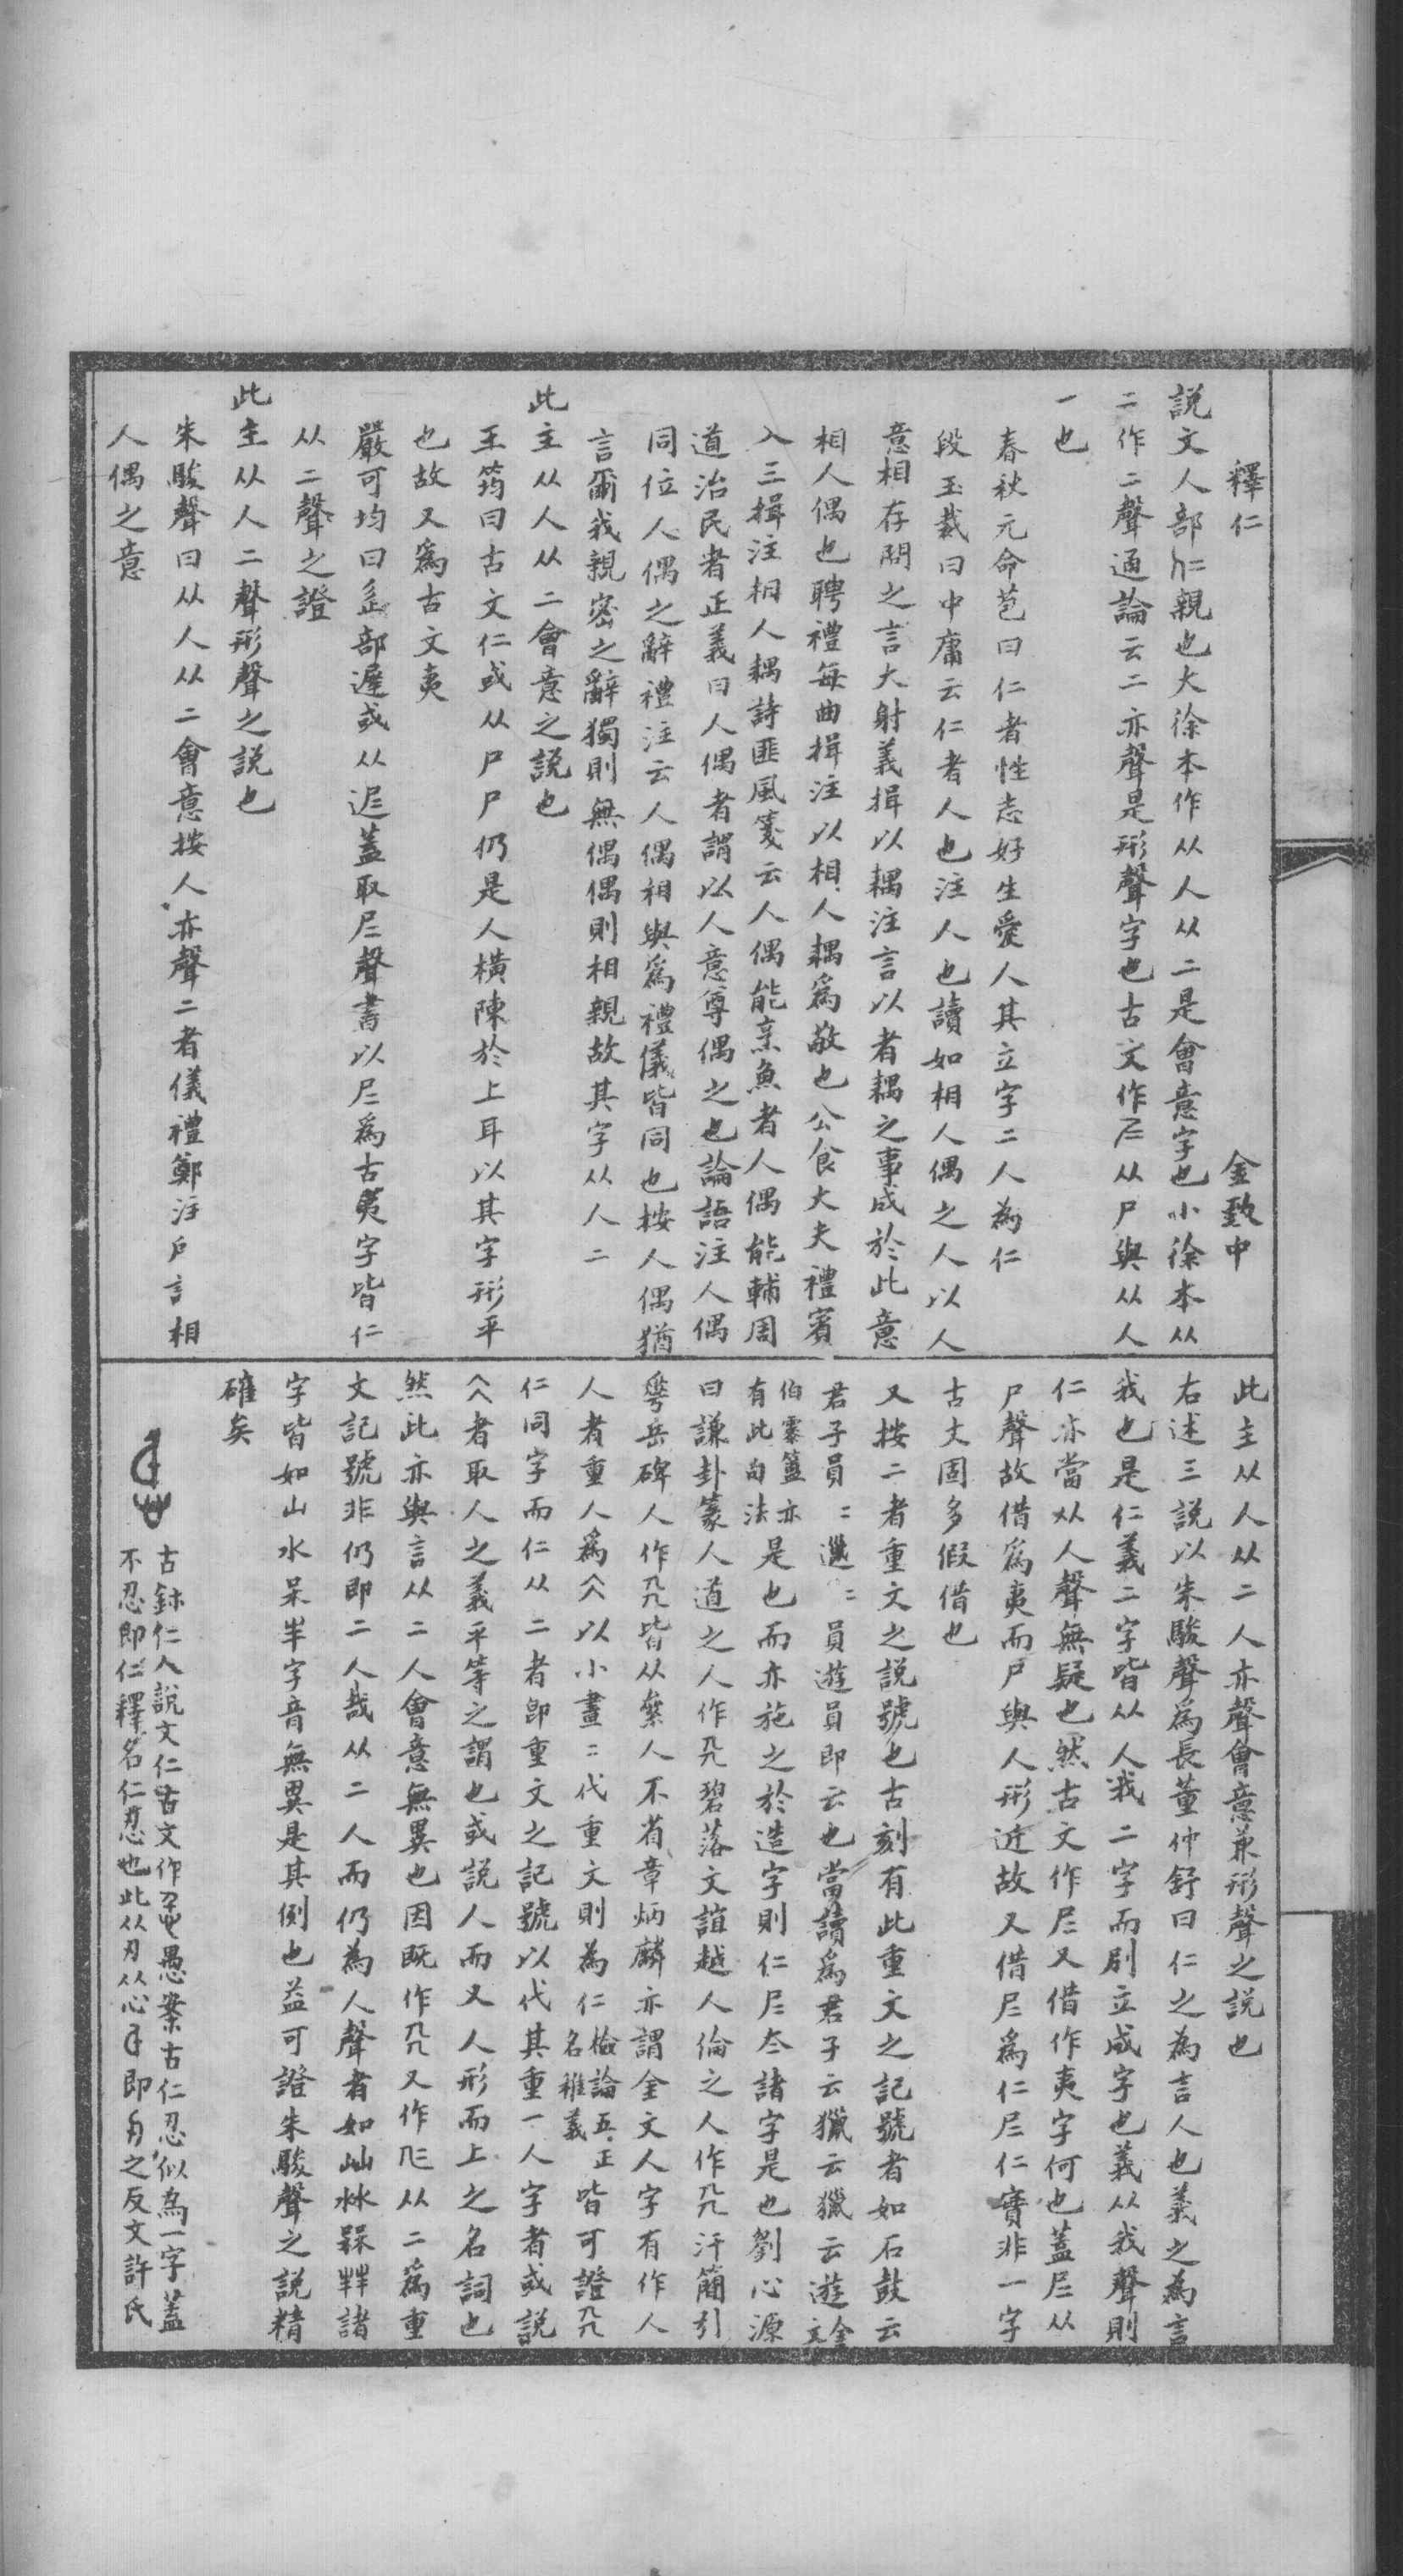 釋仁　金致中
説文人部仁親也大徐本作从人从二是會意字也小徐本从
二作二聲通論云二亦聲是形聲字也古文作𡰥从尸與从人
一也
春秋元命苞曰仁者性志好生愛人其立字二人為仁
段玉裁曰中庸云仁者人也注人也讀如相人偶之人以人
意相存問之言大射義揖以耦注言以者耦之事成於此意
相人偶也聘禮每曲揖注以相人耦爲敬也公食大夫禮賓
入三揖注相人耦詩匪風箋云人偶能亲魚者人偶能輔周
道治民者正義曰人偶者謂以人意尊偶之也論語注人偶
同位人偶之辭禮注云人偶相與爲禮儀皆同也按人偶猶
言爾我親密之辭獨則無偶偶則相親故其字从人二
此主从人从二會意之説也
王筠曰古文仁或从尸尸仍是人橫陳於上耳以其字形平
也故又爲古文夷
嚴可均曰辵部遲或从迡蓋取𡰥聲書以𡰥爲古夷字皆仁
从二聲之證
此主从人二聲形聲之説也
朱駿聲曰从人从二會意按人亦聲二者儀禮鄭注所言相
人偶之意
此主从人从二人亦聲會意兼形聲之説也
右述三説以朱駿聲爲長董仲舒曰仁之為言人也義之為言
我也是仁義二字皆从人我二字而剧立成字也義从我聲則
仁亦當从人聲無疑也然古文作𡰥又借作夷字何也蓋𡰥从
尸聲故借爲夷而尸與人形近故又借𡰥爲仁𡰥仁實非一字
古文固多假借也
又按二者重文之説號也古刻有此重文之記號者如石鼓云
君子員〻邋〻員遊員即云也當讀爲君子云獵云獵云遊金文
伯𡩜簋亦有此句法是也而亦施之於造字則仁𡰥夳諸字是也劉心源
曰謙卦篆人道之人作𠒁碧落文誼越人倫之人作𠒁汗簡引
華岳碑人作𠒁皆从絫人不省章炳麟亦謂金文人字有作人
人者重人爲仌以小畫〻代重文則為仁檢論五正名雜義皆可證𠒁
仁同字而仁从二者即重文之記號以代其重一人字者或説
仌者取人之義平等之謂也或説人而又人形而上之名詞也
然此亦與言从二人會意無異也因既作𠒁又作𠨑从二爲重
文記號非仍即二人哉从二人而仍為人聲者如屾沝槑𤘒諸
字皆如山水呆半字音無異是其例也益可證朱駿聲之説精
確矣
古鉥仁人説文仁古文作忎愚案古仁忍似為一字蓋
不忍即仁釋名仁忍也此从刃从心即身之反文許氏